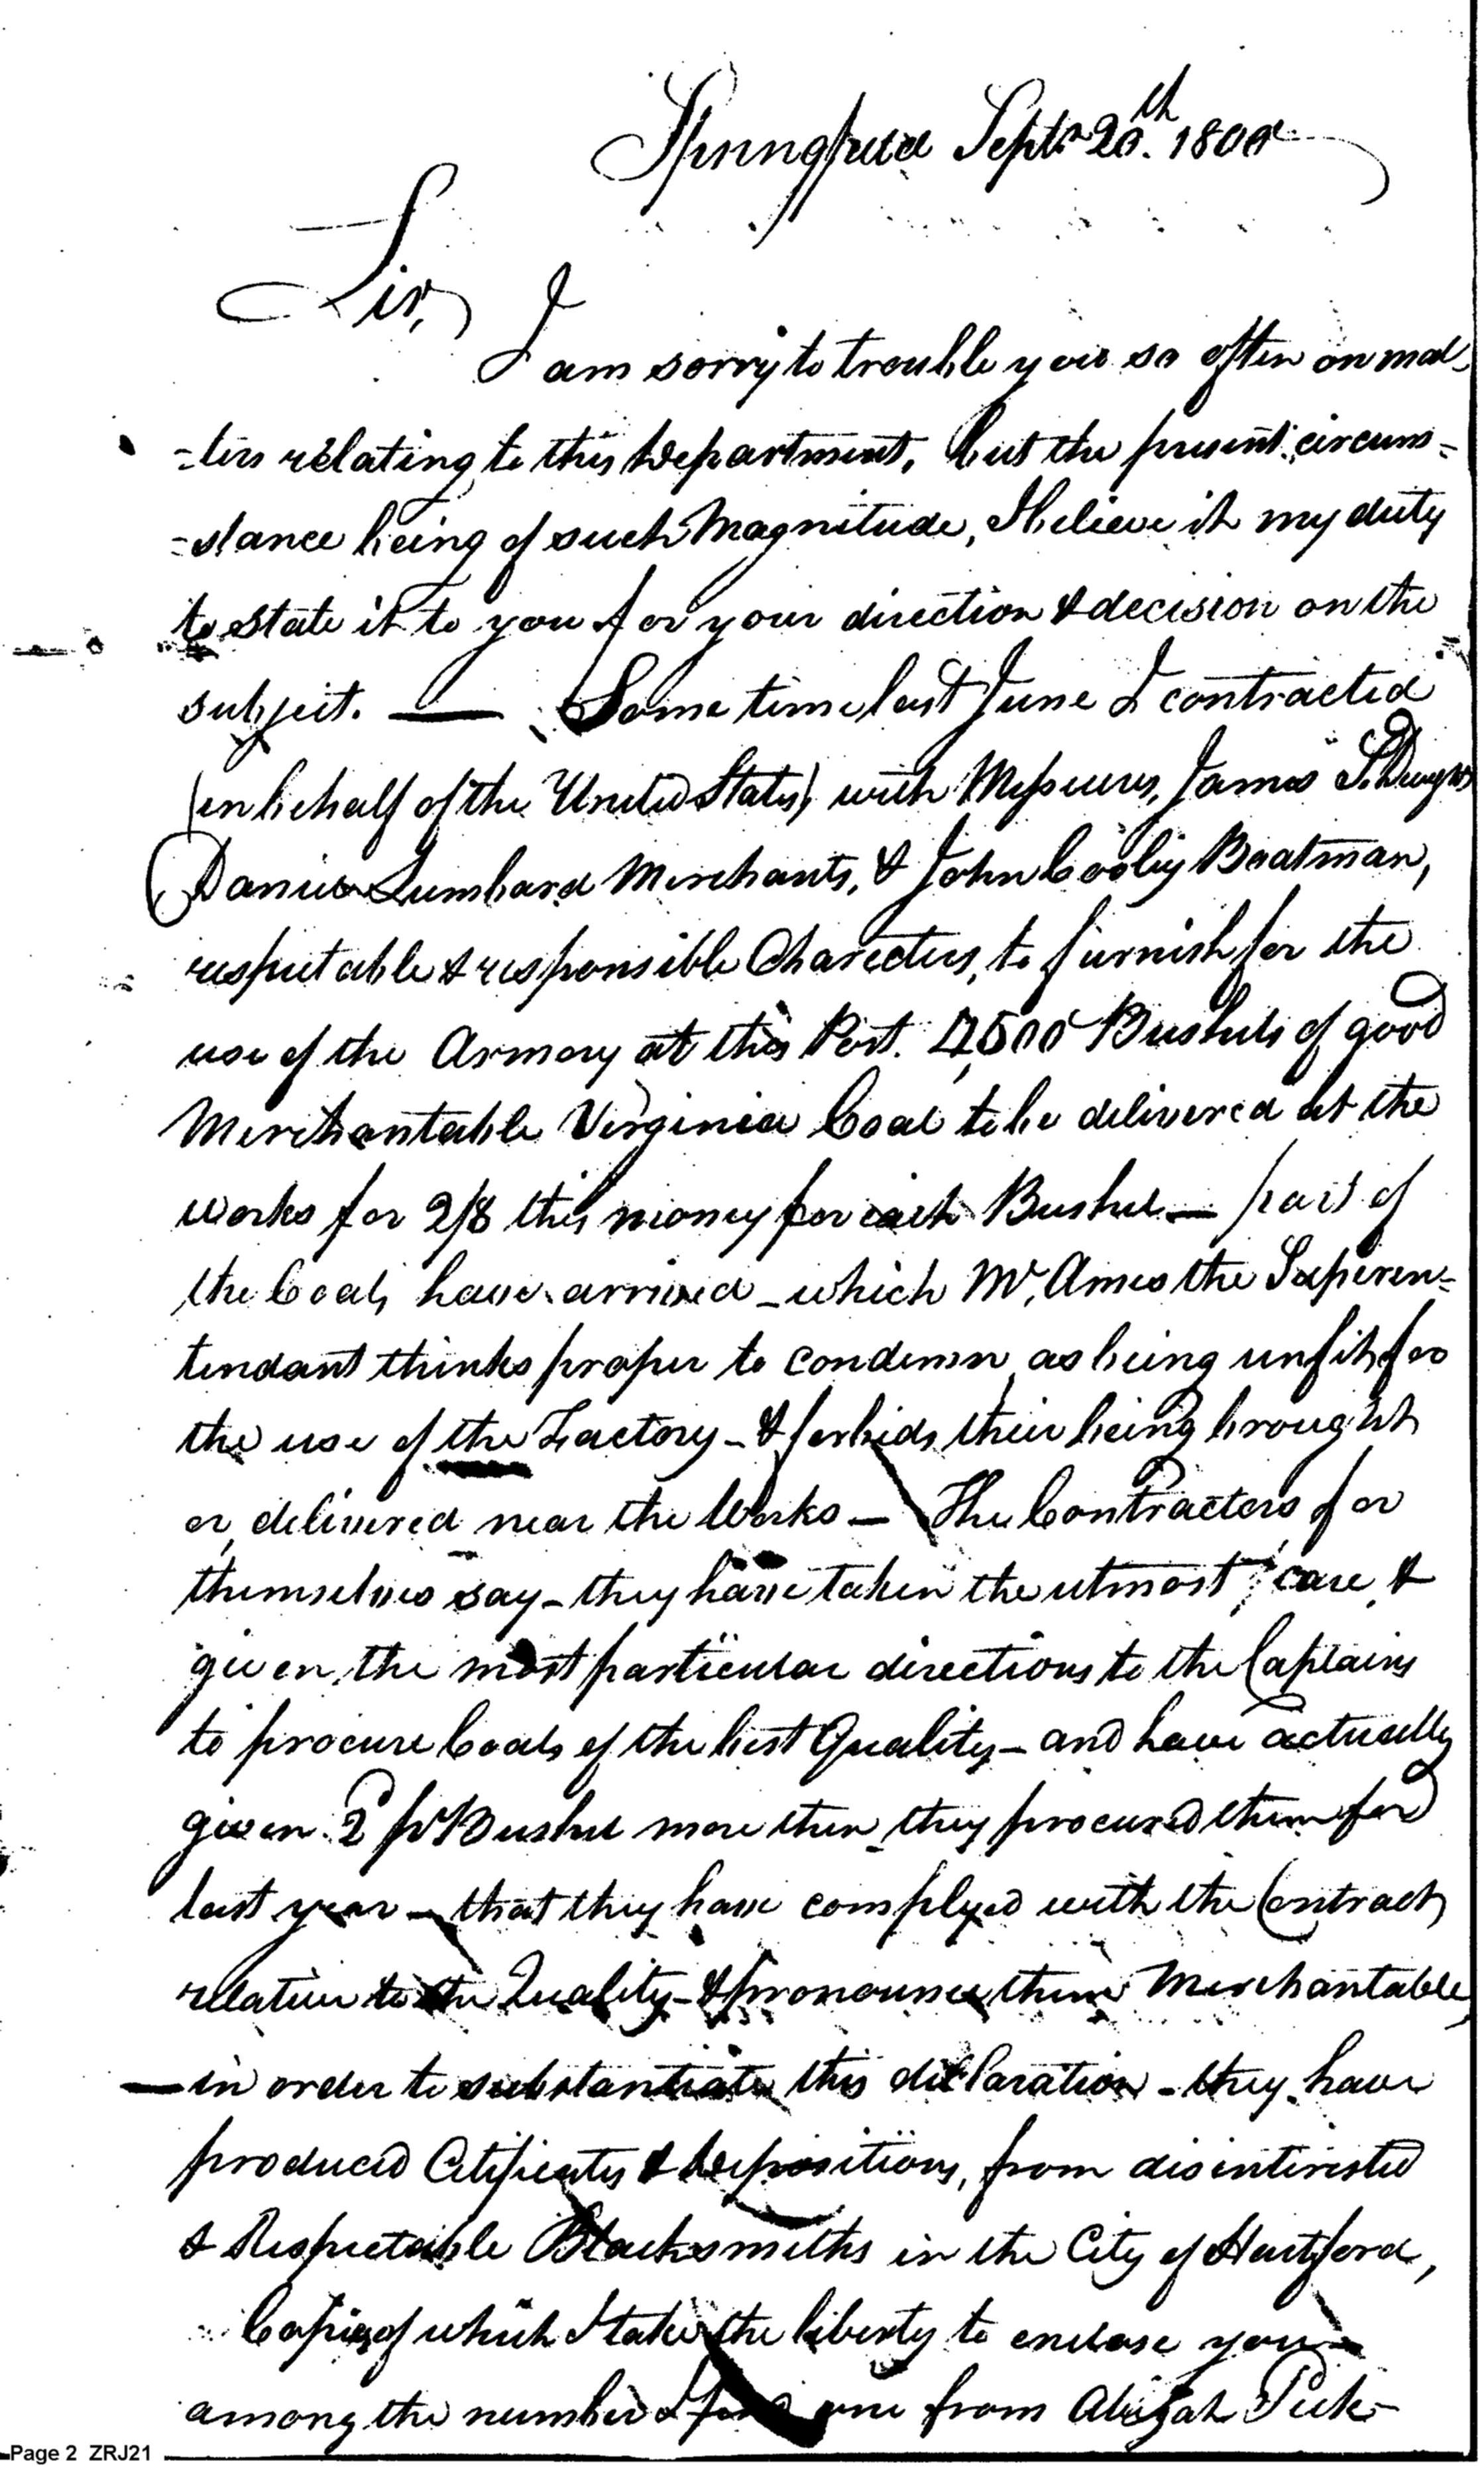 Springfield Septr. 20th. 1800
Sir,
I am sorry to trouble you so often on mat-
-ters relating to this Department, but the present circum-
-stance being of such Magnitude, I believe it my duty
to state it to you for your direction & decision on the
subject. — Some time last June I contracted
(in behalf of the United States) with Messieurs, James S. Dwight
Daniel Lumbard Merchants, & John Cooley Boatman,
respectable & responsible Charecters, to furnish for the
use of the Armory at this Post. 4,500 Bushels of good
Merchantable Virginia Coal to be delivered at the
works for 2/8 this money for each Bushel — part of
the Coals have arrived – which Mr. Ames the Superen-
tendant thinks proper to condemn as being unfit for
the use of the Factory – & forbids their being brought
or delivered near the Works — The Contractors for
themselves say – they have taken the utmost care &
given the most particular directions to the Captains
to procure Coals of the best Quality – and have actually
given 2d pr Bushel more than they procured them for
last year — that they have complyed with the Contract
relative to the Quality – & pronounce them Merchantable,
— in order to substantiate this declaration – they have
produced Cetificates & Depositions, from disinterested
& Respectable Blacksmiths in the City of Hartford,
Copies of which I take the liberty to enclose you –
among the number I one from Abijah Peck –
Page 2 ZRJ21